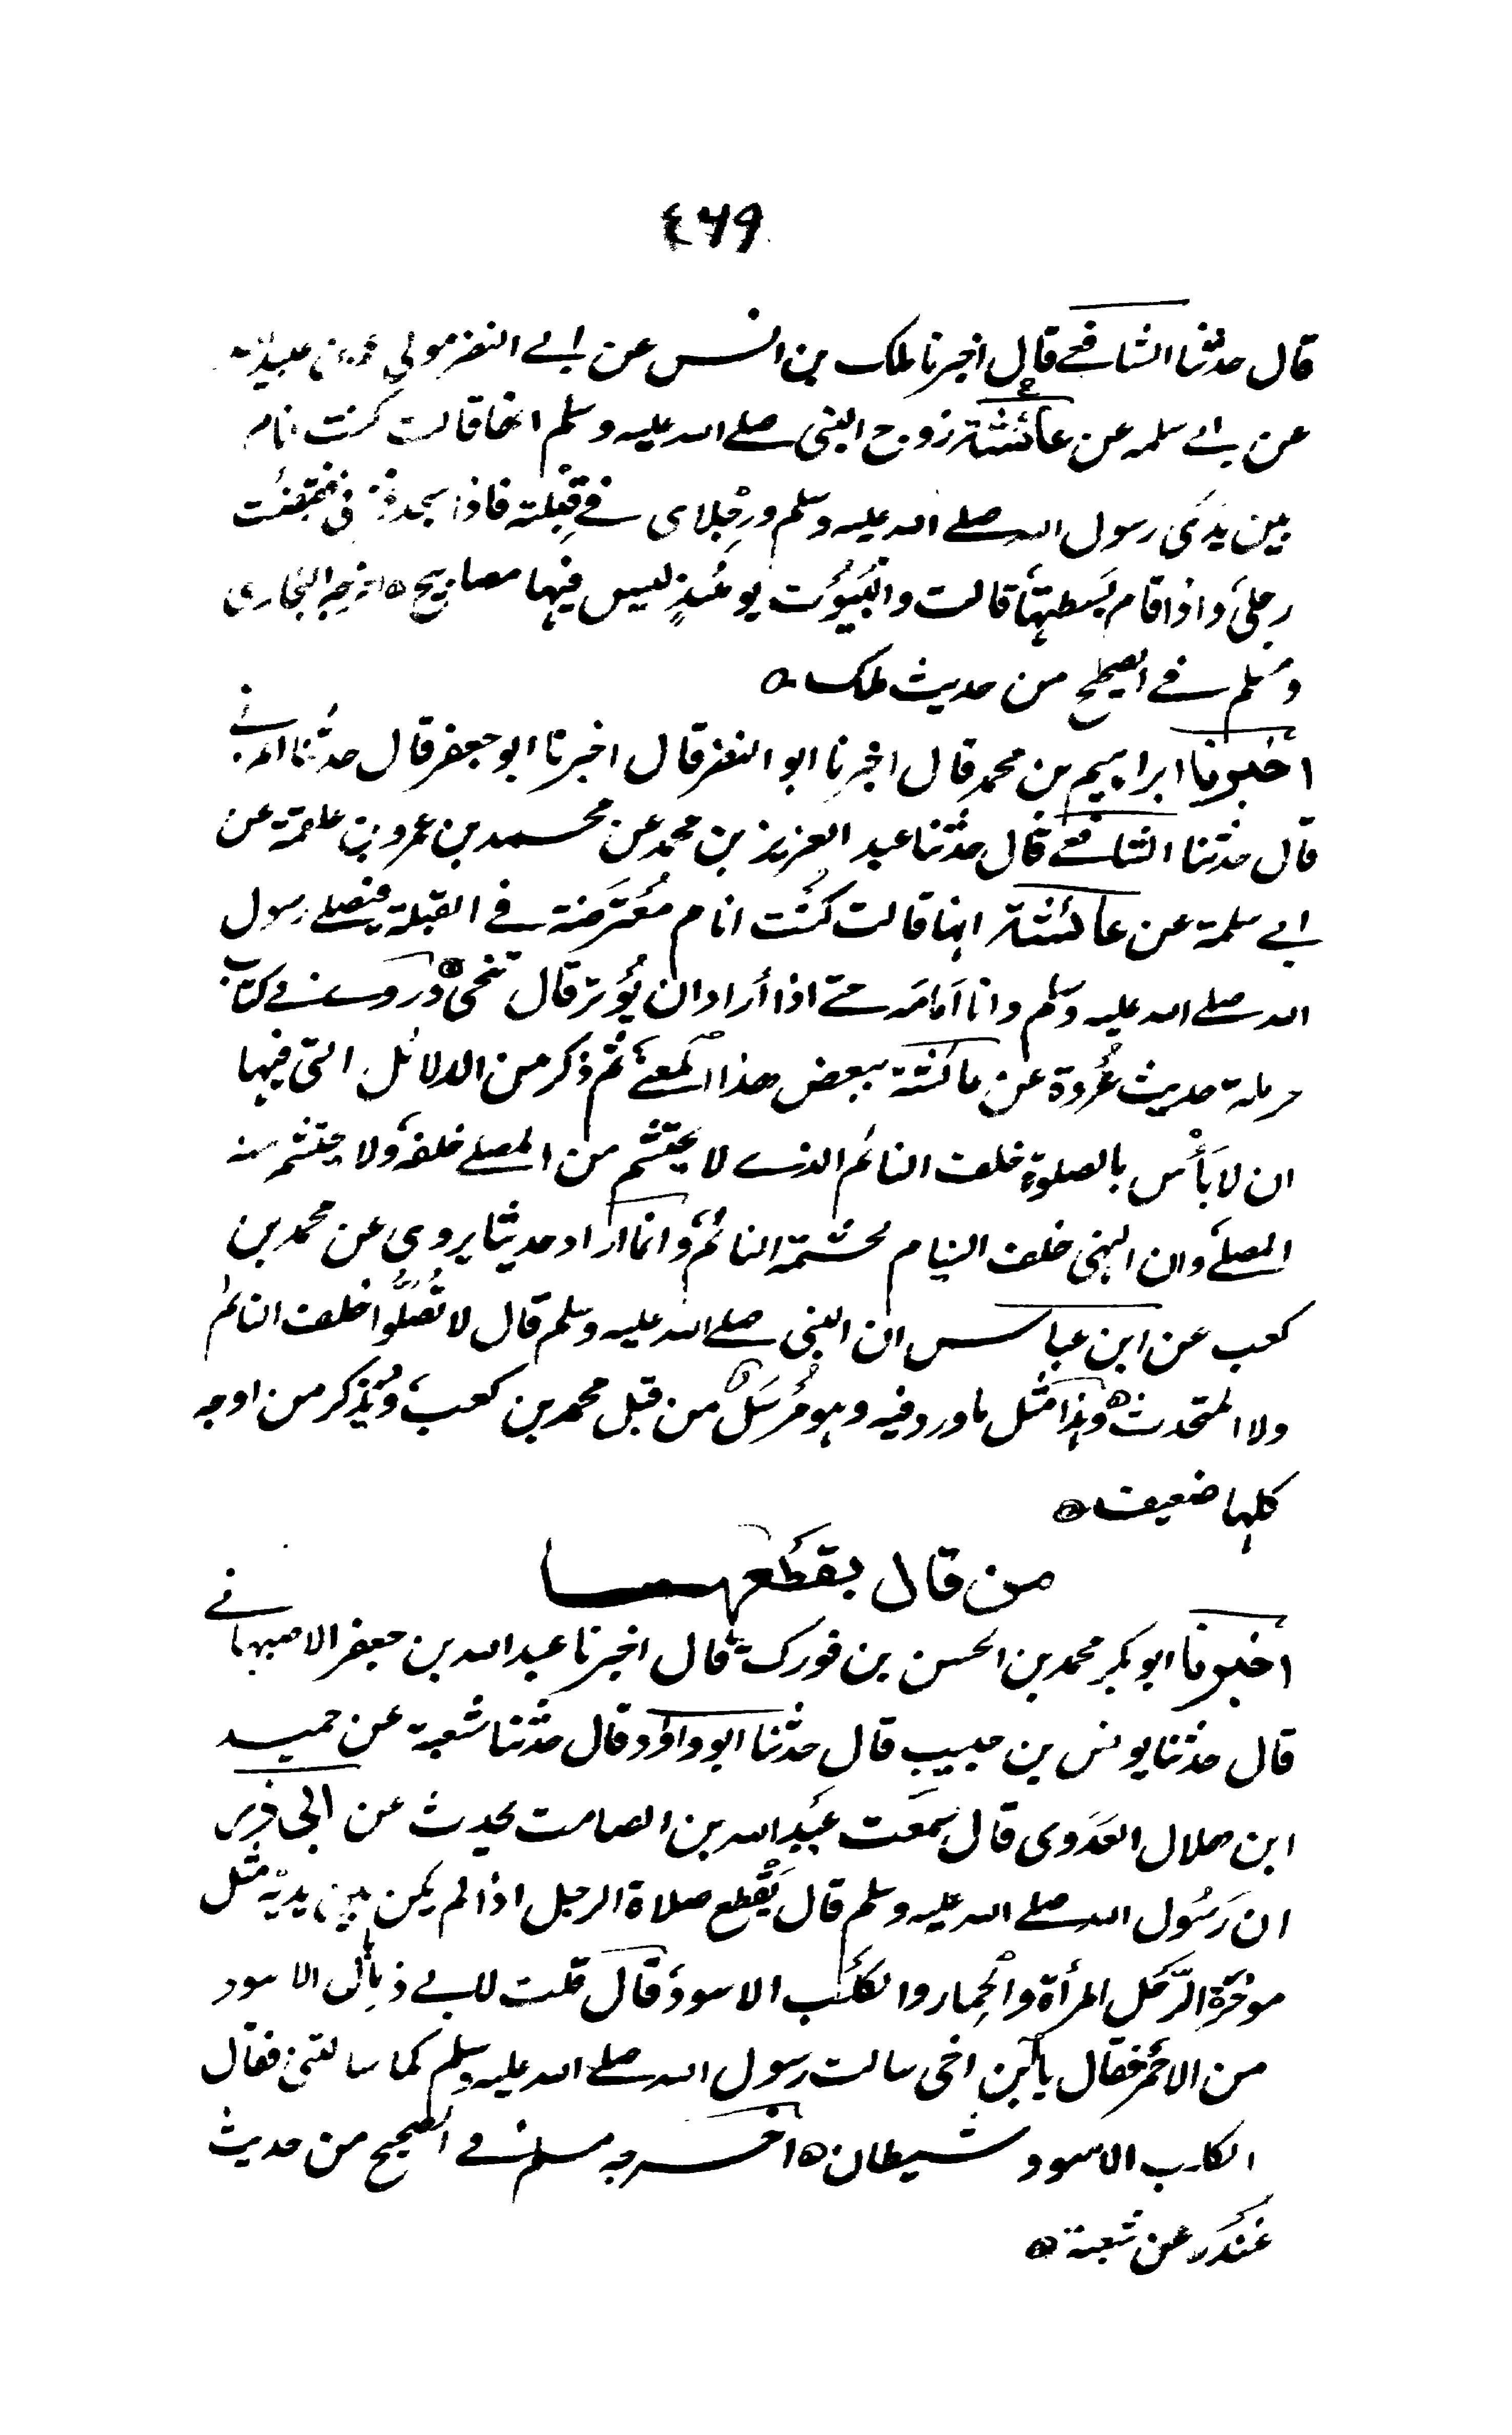 ٤٦٩
قال حدثنا الشافعے قال اخبرنا ملك بن انس عن ابے النضر مولی عمر بن عبيد الله
عن ابے سلمه عن عائشة زوج النبی صلے الله عليه وسلم انها قالت كنت انام
بين يدَی رسول الله صلے الله عليه وسلم ورِجْلای فے قِبْلته فاذا سجد غمزنی فقبضْت
رجلیَّ واذا قام بَسطتهَا قالت والبُيُوْت يومئذٍ ليس فيها مصابيح ۵ اخرجه البخاری
ومسلم فے الصحيح من حديث ملك ۵
اخبرنا ابراهيم بن محمد قال اخبرنا ابو النضر قال اخبرنا ابو جعفر قال حدثنا المزنے
قال حدثنا الشافعے قال حدثنا عبد العزيز بن محمد عن محمد بن عمرو بن علقمة عن
ابے سلمة عن عائشة انها قالت كنت انام مُعترضة فے القبلة فيصلے رسول
الله صلے الله عليه وسلم وانا اَمَامَه حتے اذا أراد ان يُوْتر قال تنحی ۵ وروے فے كتاب
حرملة حديث عُروة عن عائشة ببعض هذا المعنے ثم ذكر من الدلائل التی فيها
ان لا بَأْس بالصلوةِ خلف النائم الذے لا يحتشم من المصلے خلفه ولا يحتشم منه
المصلے وان النهی خلف النيام لحشمة النائم وانما اراد حديثا يروی عن محمد بن
كعب عن ابن عباس ان النبی صلے الله عليه وسلم قال لا تُصَلُّوا خلف النائم
ولا المتحدث ۵ وهذا امثل ما ورد فيه وهو مُرسَل من قبل محمد بن كعب ويُذكر من اوجه
كلها ضعيف ۵
من قال بقطعها
اخبرنا ابو بكر محمد بن الحسن بن فورك قال اخبرنا عبد الله بن جعفر الاصبهانے
قال حدثنا يونس بن حبيب قال حدثنا ابو داؤد قال حدثنا شعبة عن حميد
ابن هلال العَدَوی قال سمعت عبد الله بن الصامت يحدث عن ابی ذر
ان رَسُول الله صلے الله عليه وسلم قال يَقْطع صلاة الرجل اذا لم يكن بين يديْه مثل
موخرة الرَّحل المرأة والْحِمار والكلب الاسود قال قلت لابے ذر ما بال الاسود
من الاحمر فقال يا ابن اخی سالت رسول الله صلے الله عليه وسلم كما سالتنی فقال
الكلب الاسود شيطان ۵ اخرجه مسلم فے الصحيح من حديث
غندَر عن شعبة ۵